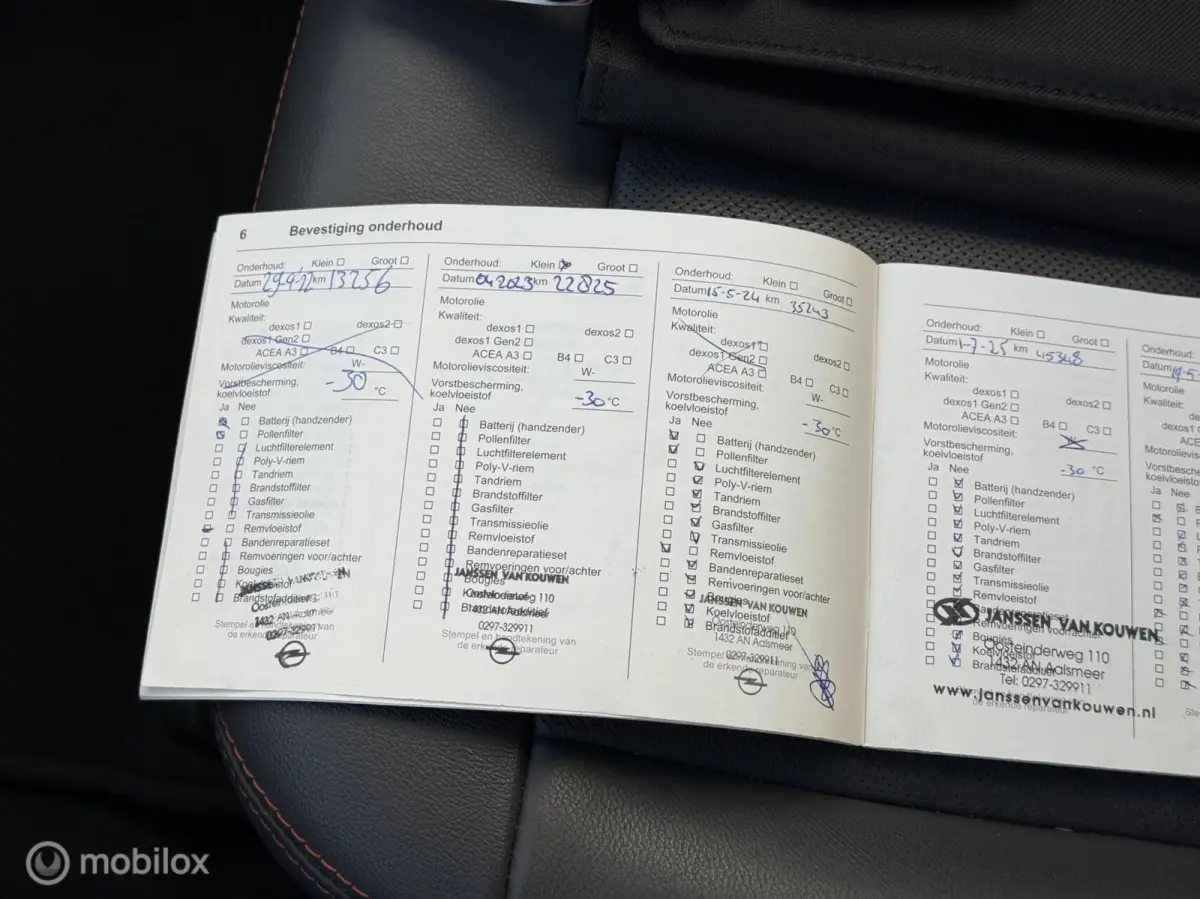 6 Bevestiging onderhoud
Onderhoud: Klein Groot
Datum 29-9-22 km 13256
Motorolie
Kwaliteit:
dexos1 dexos2
dexos1 Gen2
ACEA A3 B4 C3
Motorolieviscositeit: W-
Vorstbescherming,
koelvloeistof -30 °C
Ja Nee
Batterij (handzender)
Pollenfilter
Luchtfilterelement
Poly-V-riem
Tandriem
Brandstoffilter
Gasfilter
Transmissieolie
Remvloeistof
Bandenreparatieset
Remvoeringen voor/achter
Bougies
Koelvloeistof
Brandstofadditief
JANSSEN VAN KOUWEN
1432 AN Aalsmeer
0297-329911
Stempel en handtekening van
de erkende reparateur
Onderhoud: Klein Groot
Datum 04 2023 km 22825
Motorolie
Kwaliteit:
dexos1 dexos2
dexos1 Gen2
ACEA A3 B4 C3
Motorolieviscositeit: W-
Vorstbescherming,
koelvloeistof -30 °C
Ja Nee
Batterij (handzender)
Pollenfilter
Luchtfilterelement
Poly-V-riem
Tandriem
Brandstoffilter
Gasfilter
Transmissieolie
Remvloeistof
Bandenreparatieset
Remvoeringen voor/achter
JANSSEN VAN KOUWEN
Bougies
Koelvloeistof
Brandstofadditief
1432 AN Aalsmeer
0297-329911
Stempel en handtekening van
de erkende reparateur
Onderhoud: Klein Groot
Datum 15-5-24 km 35243
Motorolie
Kwaliteit:
dexos1 dexos2
dexos1 Gen2
ACEA A3 B4 C3
Motorolieviscositeit: W-
Vorstbescherming,
koelvloeistof -30 °C
Ja Nee
Batterij (handzender)
Pollenfilter
Luchtfilterelement
Poly-V-riem
Tandriem
Brandstoffilter
Gasfilter
Transmissieolie
Remvloeistof
Bandenreparatieset
Remvoeringen voor/achter
Bougies
JANSSEN VAN KOUWEN
Koelvloeistof
Oosteinderweg 110
Brandstofadditief
1432 AN Aalsmeer
0297-329911
Stempel en handtekening van
de erkende reparateur
Onderhoud: Klein Groot
Datum 1-7-25 km 45348
Motorolie
Kwaliteit:
dexos1 dexos2
dexos1 Gen2
ACEA A3 B4 C3
Motorolieviscositeit: W-
Vorstbescherming,
koelvloeistof -30 °C
Ja Nee
Batterij (handzender)
Pollenfilter
Luchtfilterelement
Poly-V-riem
Tandriem
Brandstoffilter
Gasfilter
Transmissieolie
Remvloeistof
Bandenreparatieset
JANSSEN VAN KOUWEN
Remvoeringen voor/achter
Bougies
Oosteinderweg 110
Koelvloeistof
1432 AN Aalsmeer
Brandstofadditief
Tel: 0297-329911
www.janssenvankouwen.nl
de erkende reparateur
Onderhoud:
Datum
Motorolie
Kwaliteit:
ACE
Ja Nee
mobilox